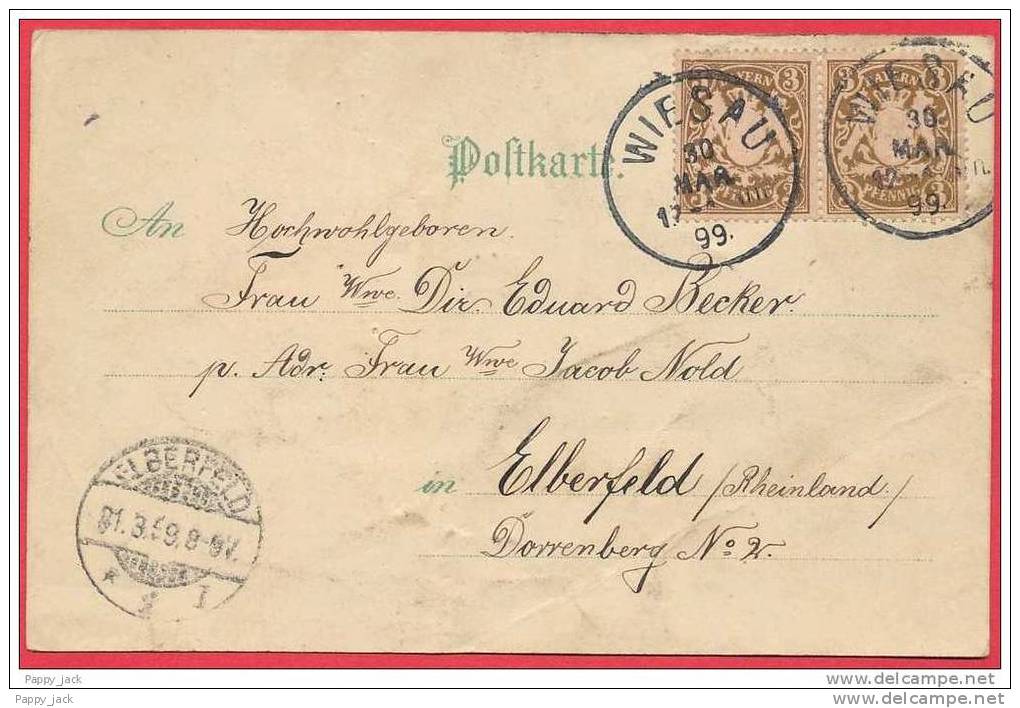 Postkarte.
BAYERN 3
BAYERN 3
PFENNIG
WIESAU
30
MAR.
12
99.
WIESAU
30
MAR.
12
99.
An Hochwohlgeboren.
Frau Wwe. Dir. Eduard Becker.
p. Adr: Frau Wwe Jacob Nold
in Elberfeld /Rheinland./
Dorrenberg No 2.
ELBERFELD
31.3.99.8-9V.
* 1
Pappy_jack
Pappy_jack
www.delcampe.net
www.delcampe.net